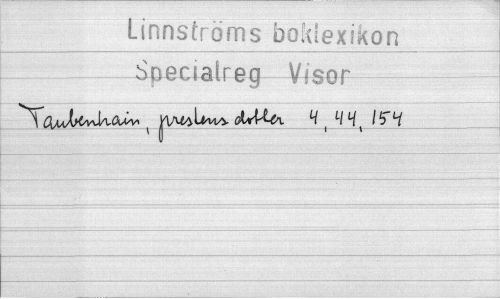 Linnströms boklexikon
Specialreg Visor
Taubenhain, prestens dotter 4, 44, 154